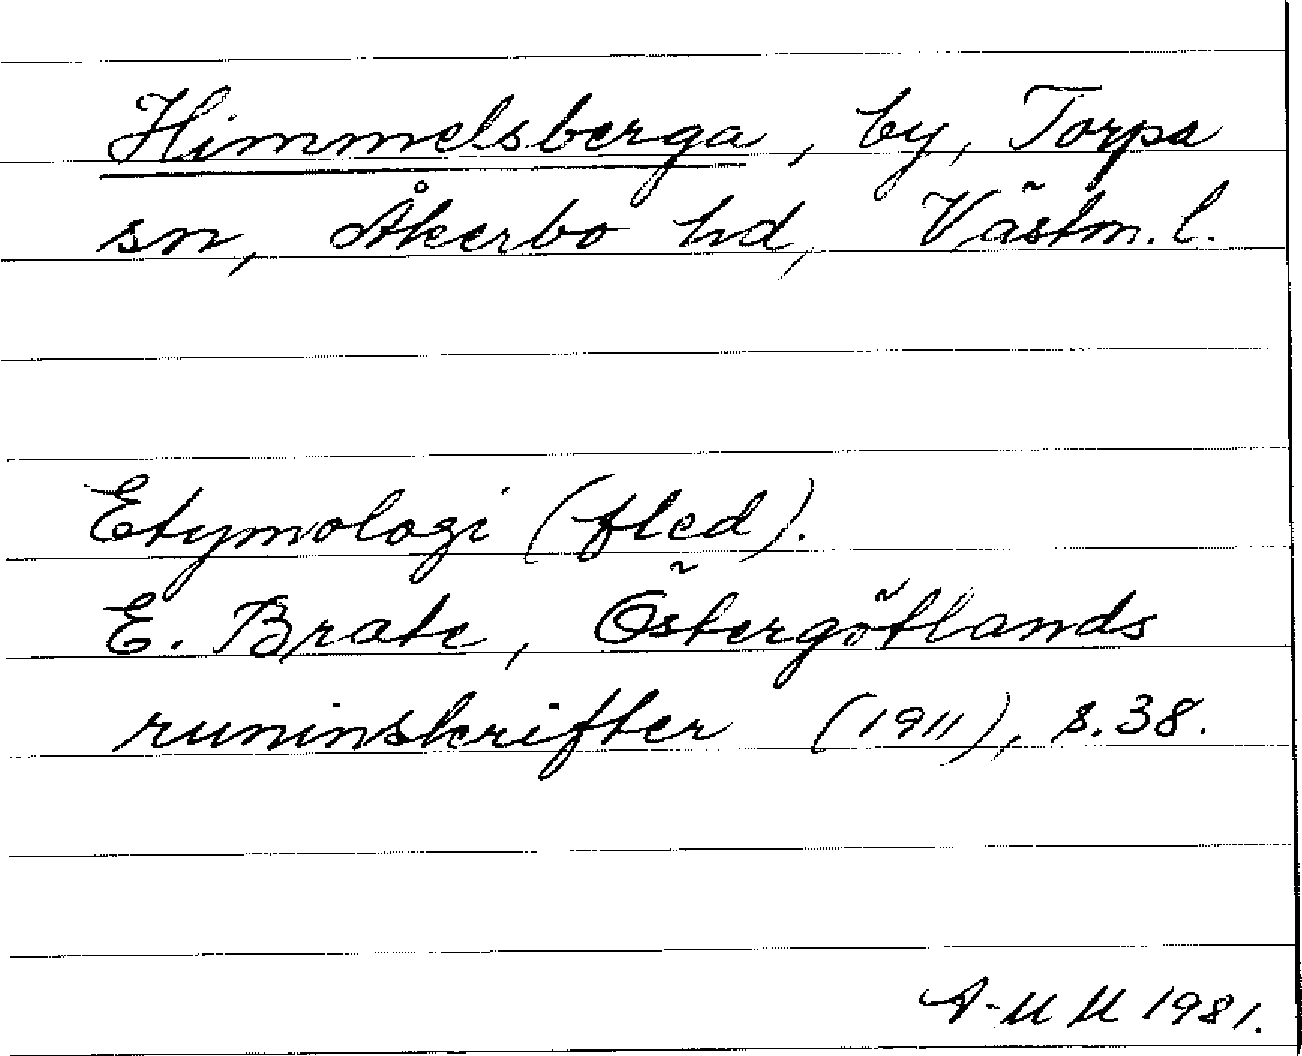 Himmelsberga, by, Torpa
sn, Åkerbo hd, Västm. l.
Etymologi (fled).
E. Brate, Östergötlands
runinskrifter (1911), s. 38.
A-MM 1981.